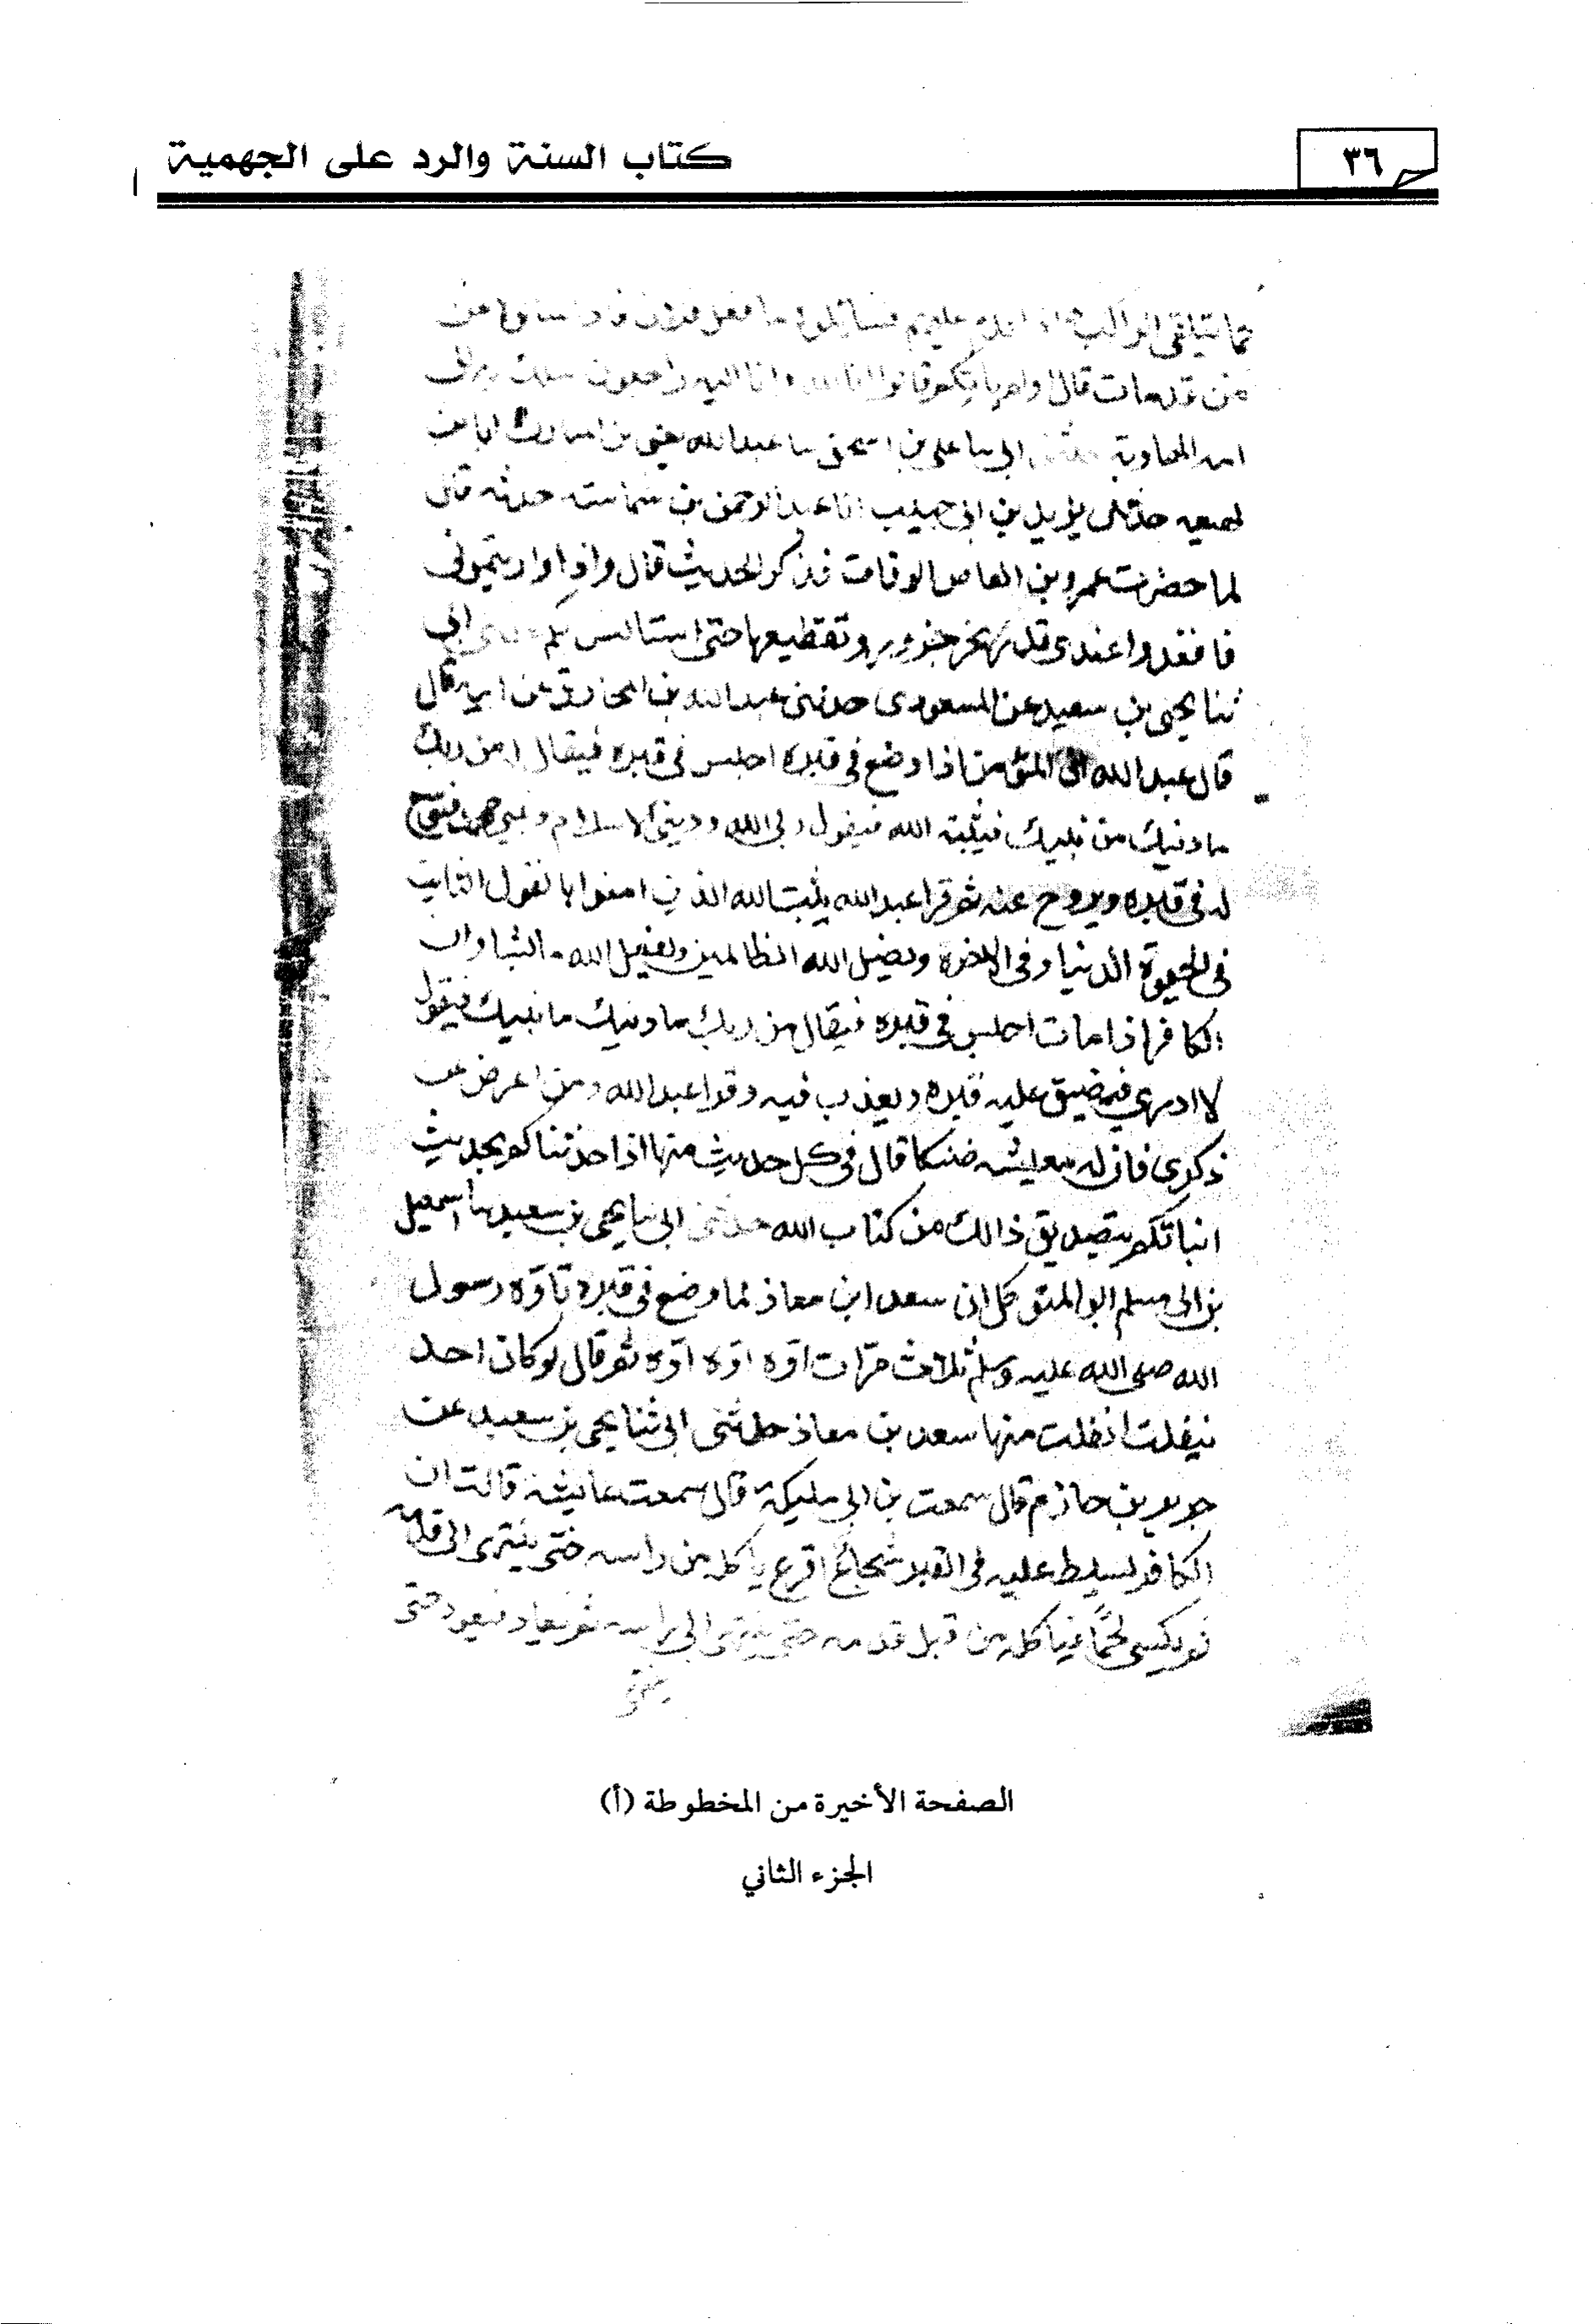 ٣٦
كتاب السنة والرد على الجهمية
كما يتلقى الراكب اذا عليهم
من قد مات قال اولم ياتكم قالوا انا لله وانا اليه راجعون سلك به الى
امه الهاوية ابى سا على بن اسحق سا عبد الله يعنى بن
لهيعه حدثنى يزيد بن ابى حبيب انا عبد الرحمن بن شماسته حدثه قال
لما حضرت عمرو بن العاص الوفات فذكر الحديث قال واذا واريتمونى
فاقعدوا عندى قدر نحر جزور وتقطيعها حتى استانس بكم ابى
ثنا يحيى بن سعيد عن المسعودى حدثنى عبد الله بن المخارق عن ابيه قال
قال عبد الله ان المؤمن اذا وضع فى قبره اجلس فى قبره فيقال من ربك
ما دينك من نبيك فيثبته الله فيقول ربى الله ودينى الاسلام ونبيى محمد فيوسع
له فى قبره ويروح عنه ثم قرا عبد الله يثبت الله الذين امنوا بالقول الثابت
فى الحيوة الدنيا وفى الاخرة ويضل الله الظالمين ويفعل الله ما يشاء وان
الكافر اذا مات اجلس فى قبره فيقال من ربك ما دينك ما نبيك فيقول
لا ادرى فيضيق عليه قبره ويعذب فيه وقرا عبد الله ومن اعرض عن
ذكرى فان له معيشه ضنكا قال فى كل حديث منها اذا حدثناكم بحديث
انباتكم بتصديق ذالك من كتاب الله حدثنى ابى سا يحيى بن سعيد سا اسمعيل
بن ابى مسلم ابو المتوكل ان سعد ابن معاذ لما وضع فى قبره تاوّه رسول
الله صلى الله عليه وسلم ثلاث مرّات اوّه اوّه اوّه ثم قال لو كان احد
نيفلت انفلت منها سعد بن معاذ حدثنى ابى ثنا يحيى بن سعيد عن
جرير بن حازم قال سمعت بن ابى مليكة قال سمعت عائشة قالت ان
الكافر ليسلط عليه فى القبر شجاع اقرع ياكله من راسه حتى ينتهى الى قدمه
ثم يكسى لحمًا فياكله من قبل قدمه حتى ينتهى الى راسه ثم يعاد فيعود حتى
الصفحة الأخيرة من المخطوطة (أ)
الجزء الثاني